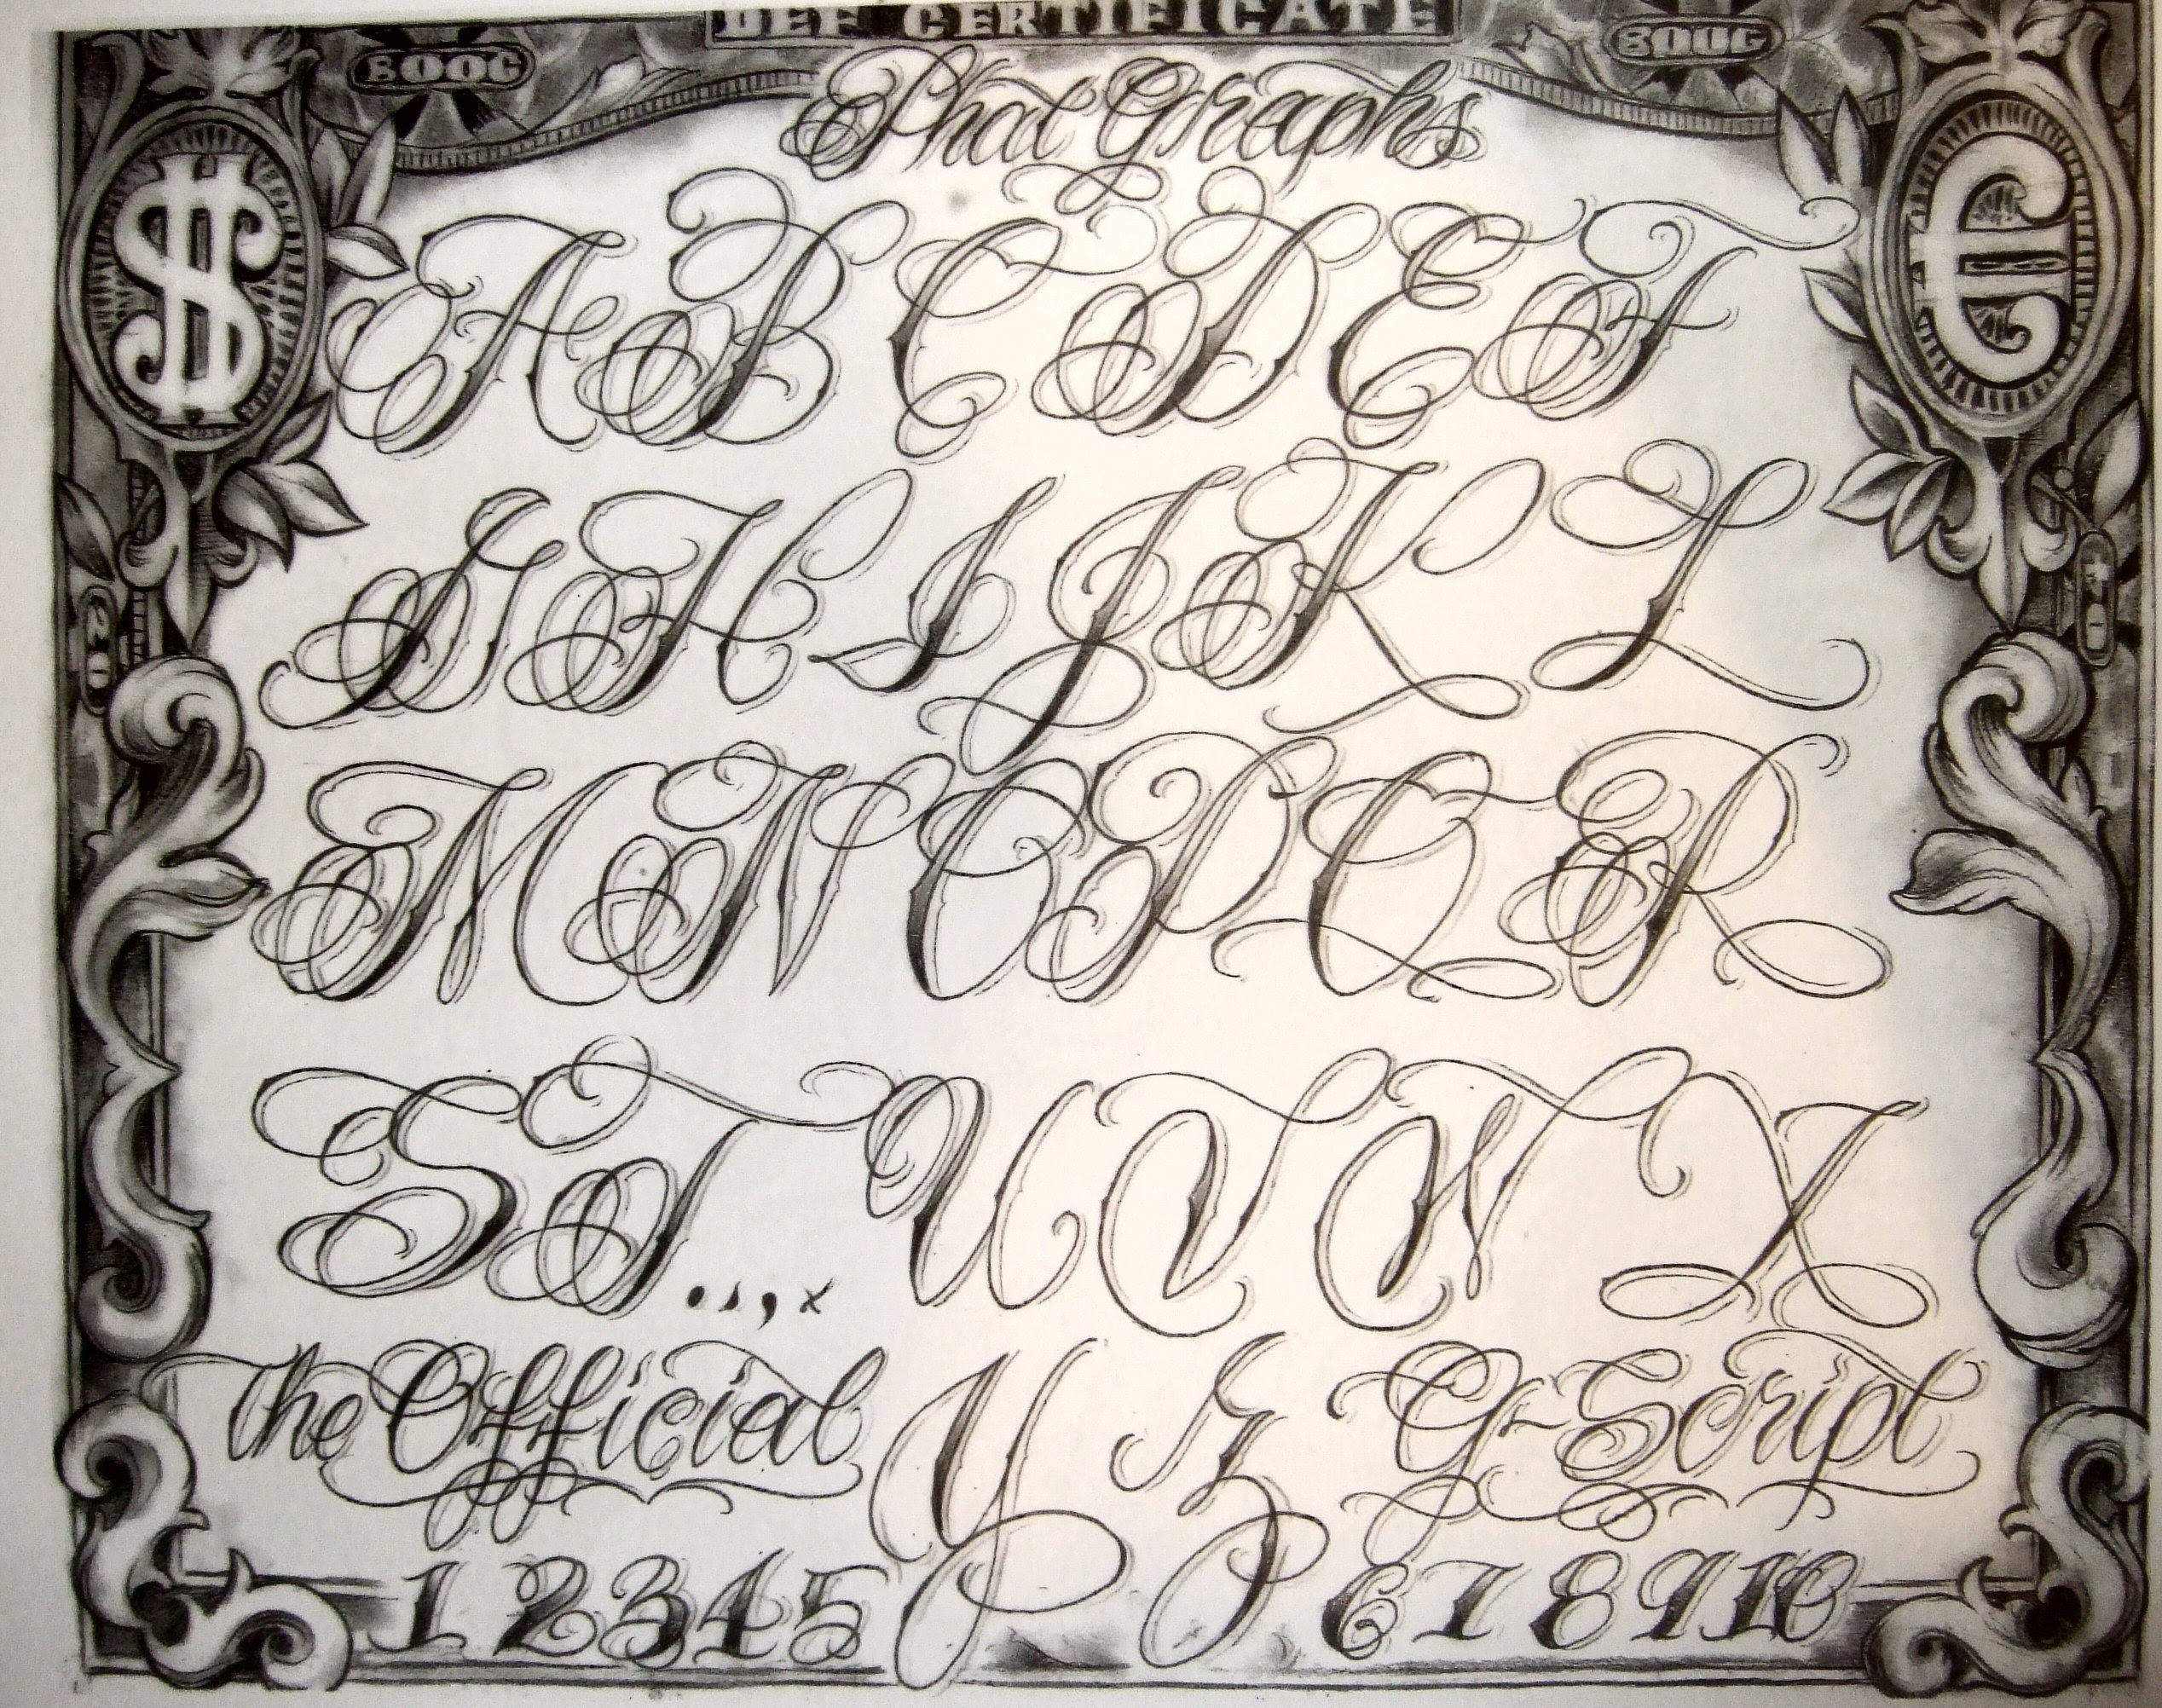 DEF CERTIFICATE
Phat Graphs
$
€
A B C D E F
G H I J K L
M N O P Q R
S T . , , x U V W X
the Official Y Z G-Script
1 2 3 4 5 6 7 8 9 10